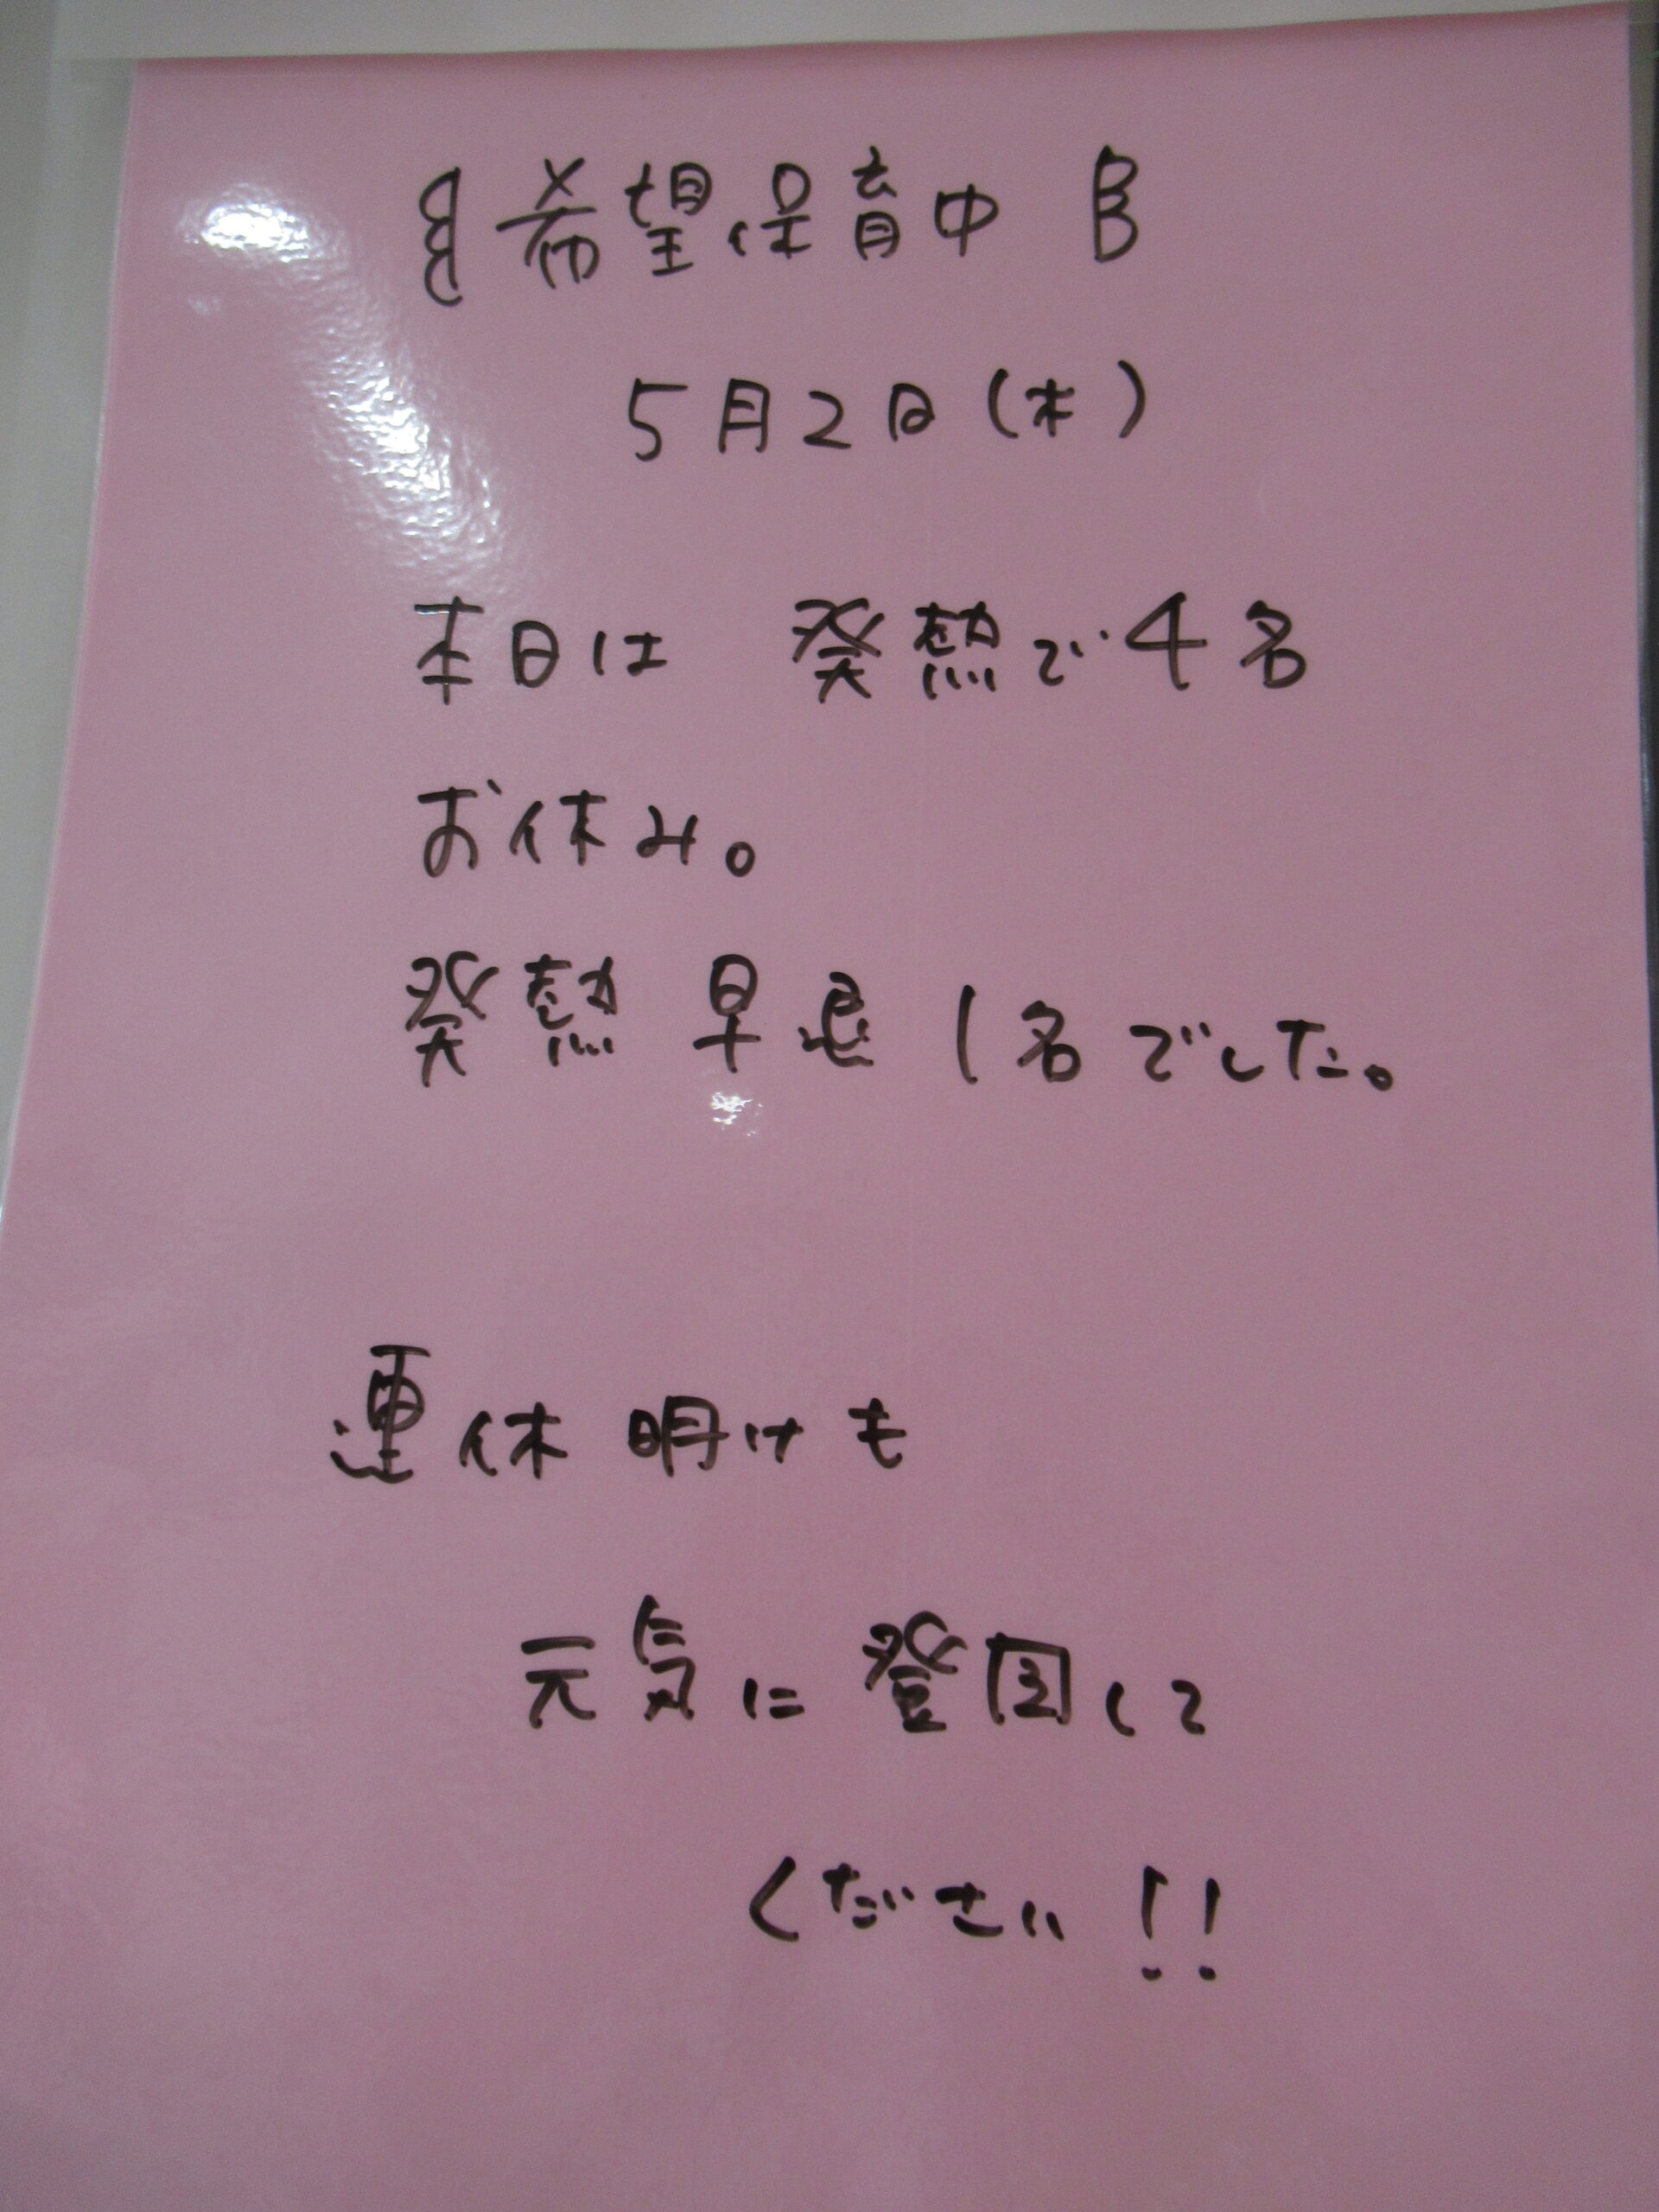 {希望保育中}
5月2日(木)
本日は 発熱で4名
お休み。
発熱 早退 1名でした。
連休明けも
元気に登園して
ください!!